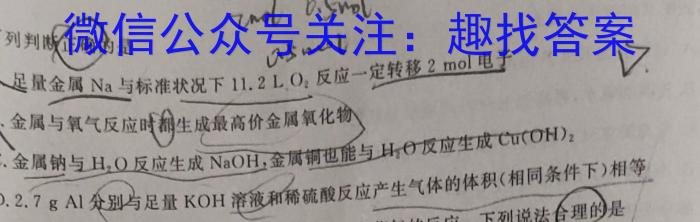 微信公众号关注：趣找答案
列判断正确的是
足量金属 Na 与标准状况下 11.2 L O₂ 反应一定转移 2 mol 电子
.金属与氧气反应时都生成最高价金属氧化物
.金属钠与 H₂O 反应生成 NaOH,金属铜也能与 H₂O 反应生成 Cu(OH)₂
D.2.7 g Al 分别与足量 KOH 溶液和稀硫酸反应产生气体的体积(相同条件下)相等
的反应，下列说法合理的是